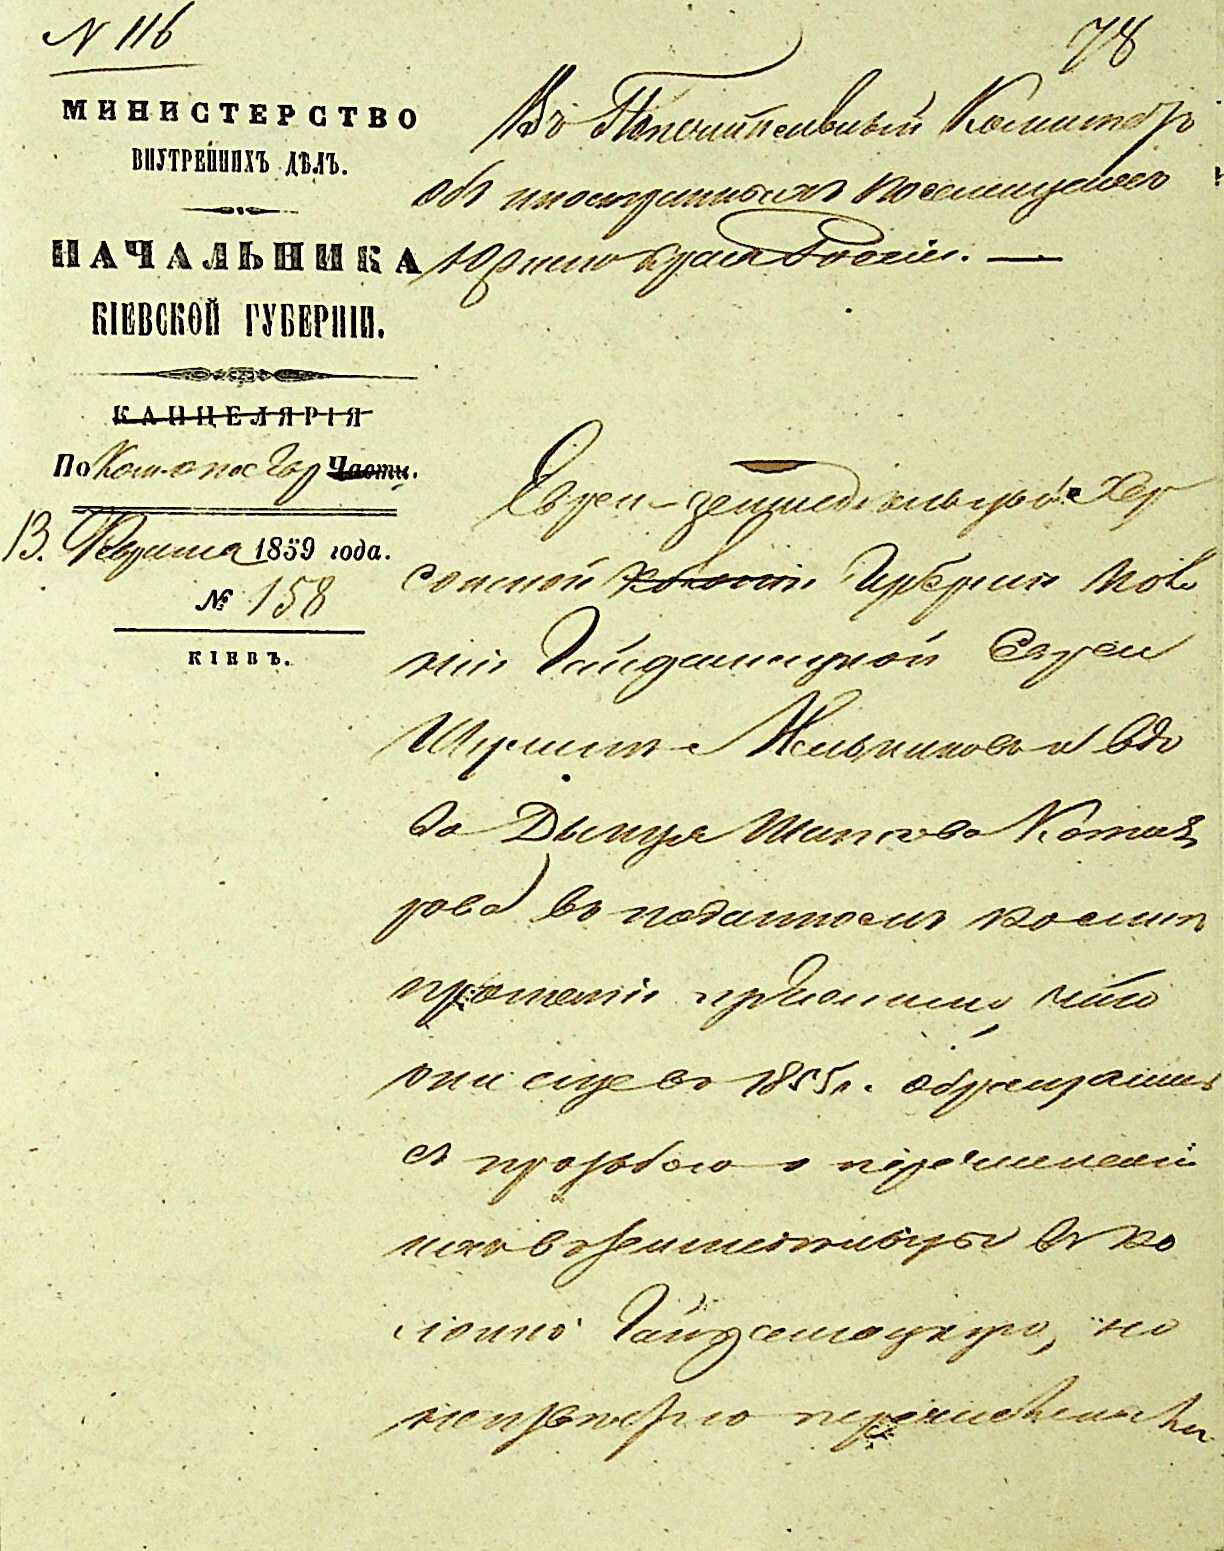 N 116
78
МИНИСТЕРСТВО
ВНУТРЕННИХЪ ДѢЛЪ.
НАЧАЛЬНИКА
КІЕВСКОЙ ГУБЕРНІИ.
КАНЦЕЛЯРІЯ
По Части.
13. Февраля 1859 года.
№ 158
КІЕВЪ.
Въ Попечительный Комитетъ
объ иностранныхъ поселенцахъ
Южнаго края Россіи. —
Евреи-земледѣльцы Хер
сонской Губерніи коло
ніи Гайдамацкой Евреи
Мельниковъ и вдо
ва Двойра Комис
рова въ поданномъ ко мнѣ
прошеніи приносили, что
они еще въ 1855 г. обращались
съ прозьбою о перечисленіи
ихъ въ земледѣльцы въ ко
лонію Гайдамацкую, но
перечислены ли